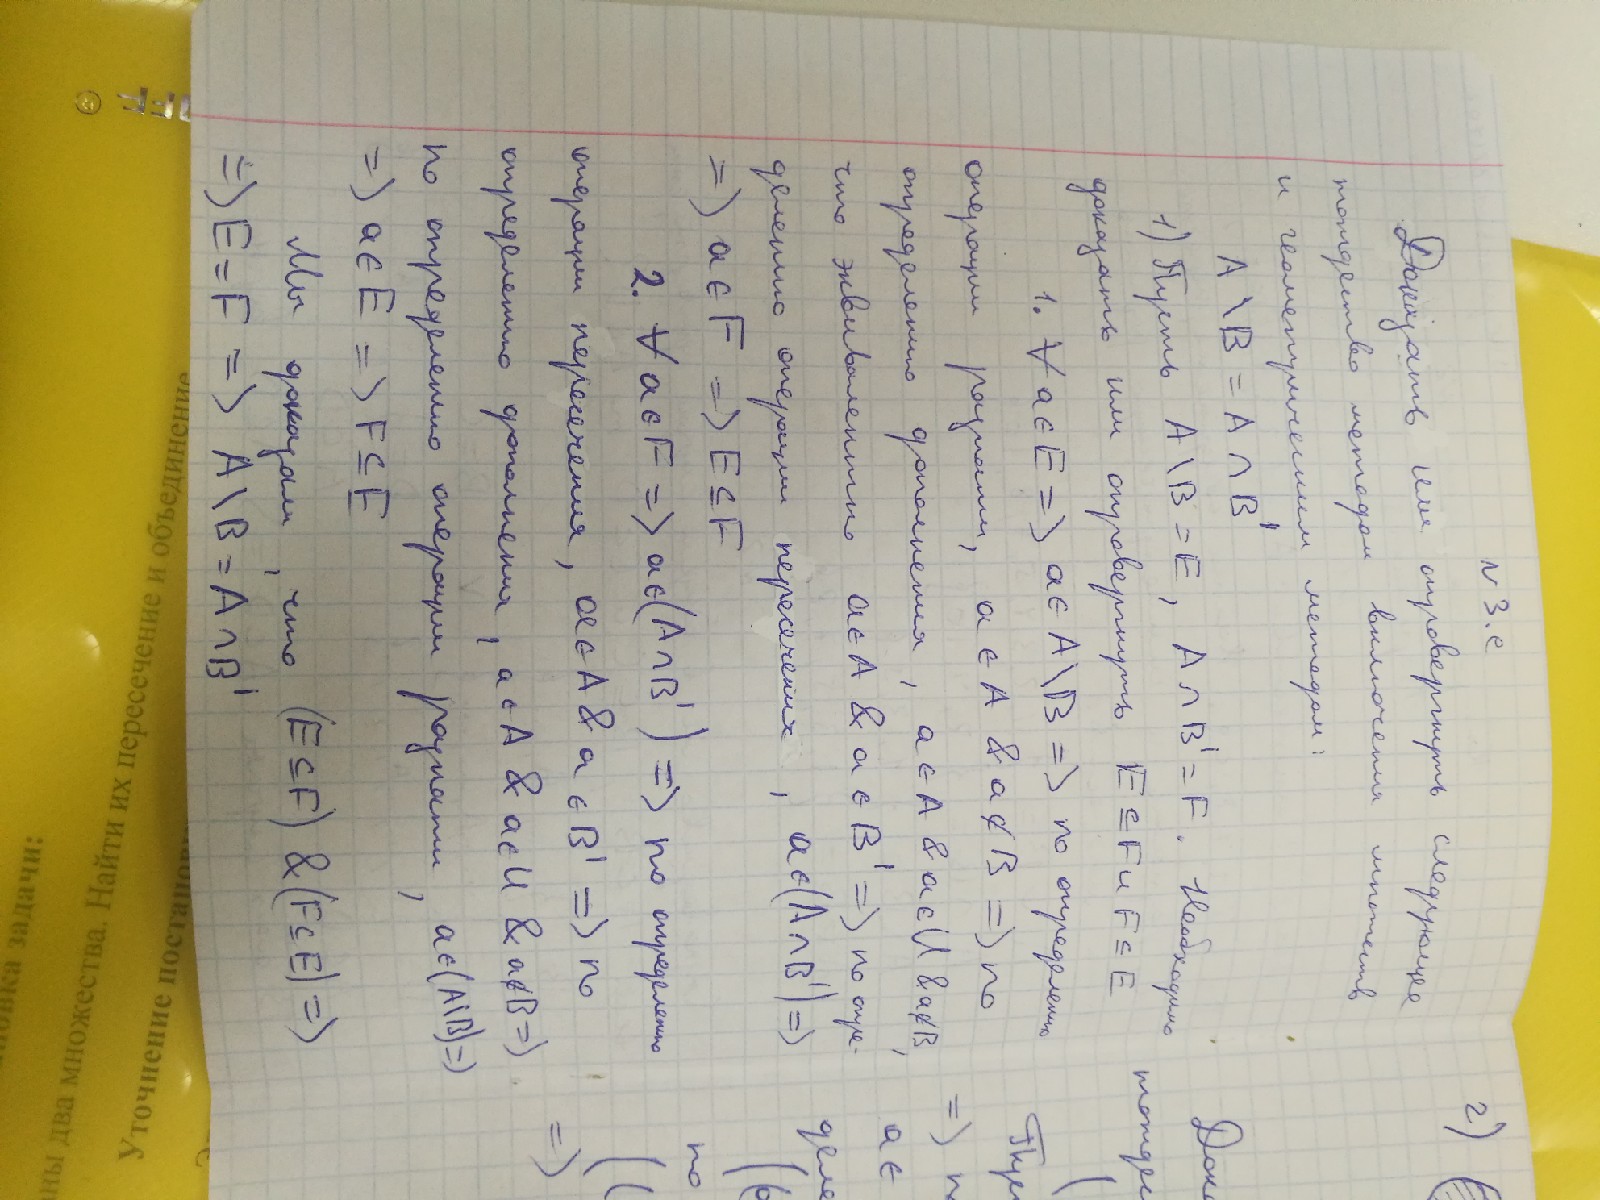 N 3.е
Доказать или опровергнуть следующее
тождество методом включения множеств
и геометрическим методом:
A \ B = A ∩ B'
1) Пусть A \ B = E, A ∩ B' = F. Необходимо
доказать или опровергнуть E ⊆ F и F ⊆ E
1. ∀ a ∈ E => a ∈ A \ B => по определению
операции разности, a ∈ A & a ∉ B => по
определению дополнения, a ∈ A & a ∈ U & a ∉ B,
что эквивалентно a ∈ A & a ∈ B' => по опре-
делению операции пересечения, a ∈ (A ∩ B') =>
=> a ∈ F => E ⊆ F
2. ∀ a ∈ F => a ∈ (A ∩ B') => по определению
операции пересечения, a ∈ A & a ∈ B' => по
определению дополнения, a ∈ A & a ∈ U & a ∉ B =>
по определению операции разности, a ∈ (A \ B) =>
=> a ∈ E => F ⊆ E
Мы доказали, что (E ⊆ F) & (F ⊆ E) =>
=> E = F => A \ B = A ∩ B'
2)
=>
a ∈
по
=>
Уточнение
два множества. Найти их пересечение и объединение
задачи: